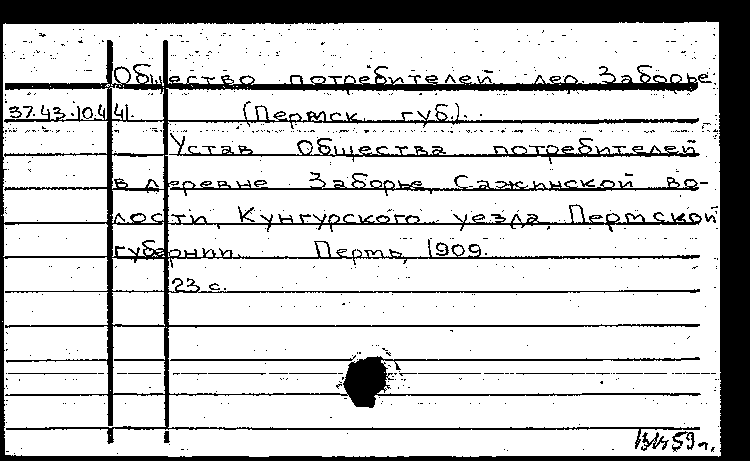 Общество потребителей дер. Заборье
37.43.10.441. (Пермск. губ.).
Устав Общества потребителей
в деревне Заборье, Сажинской во-
лости, Кунгурского уезда, Пермской
губернии. Пермь, 1909.
23 с.
59 г.